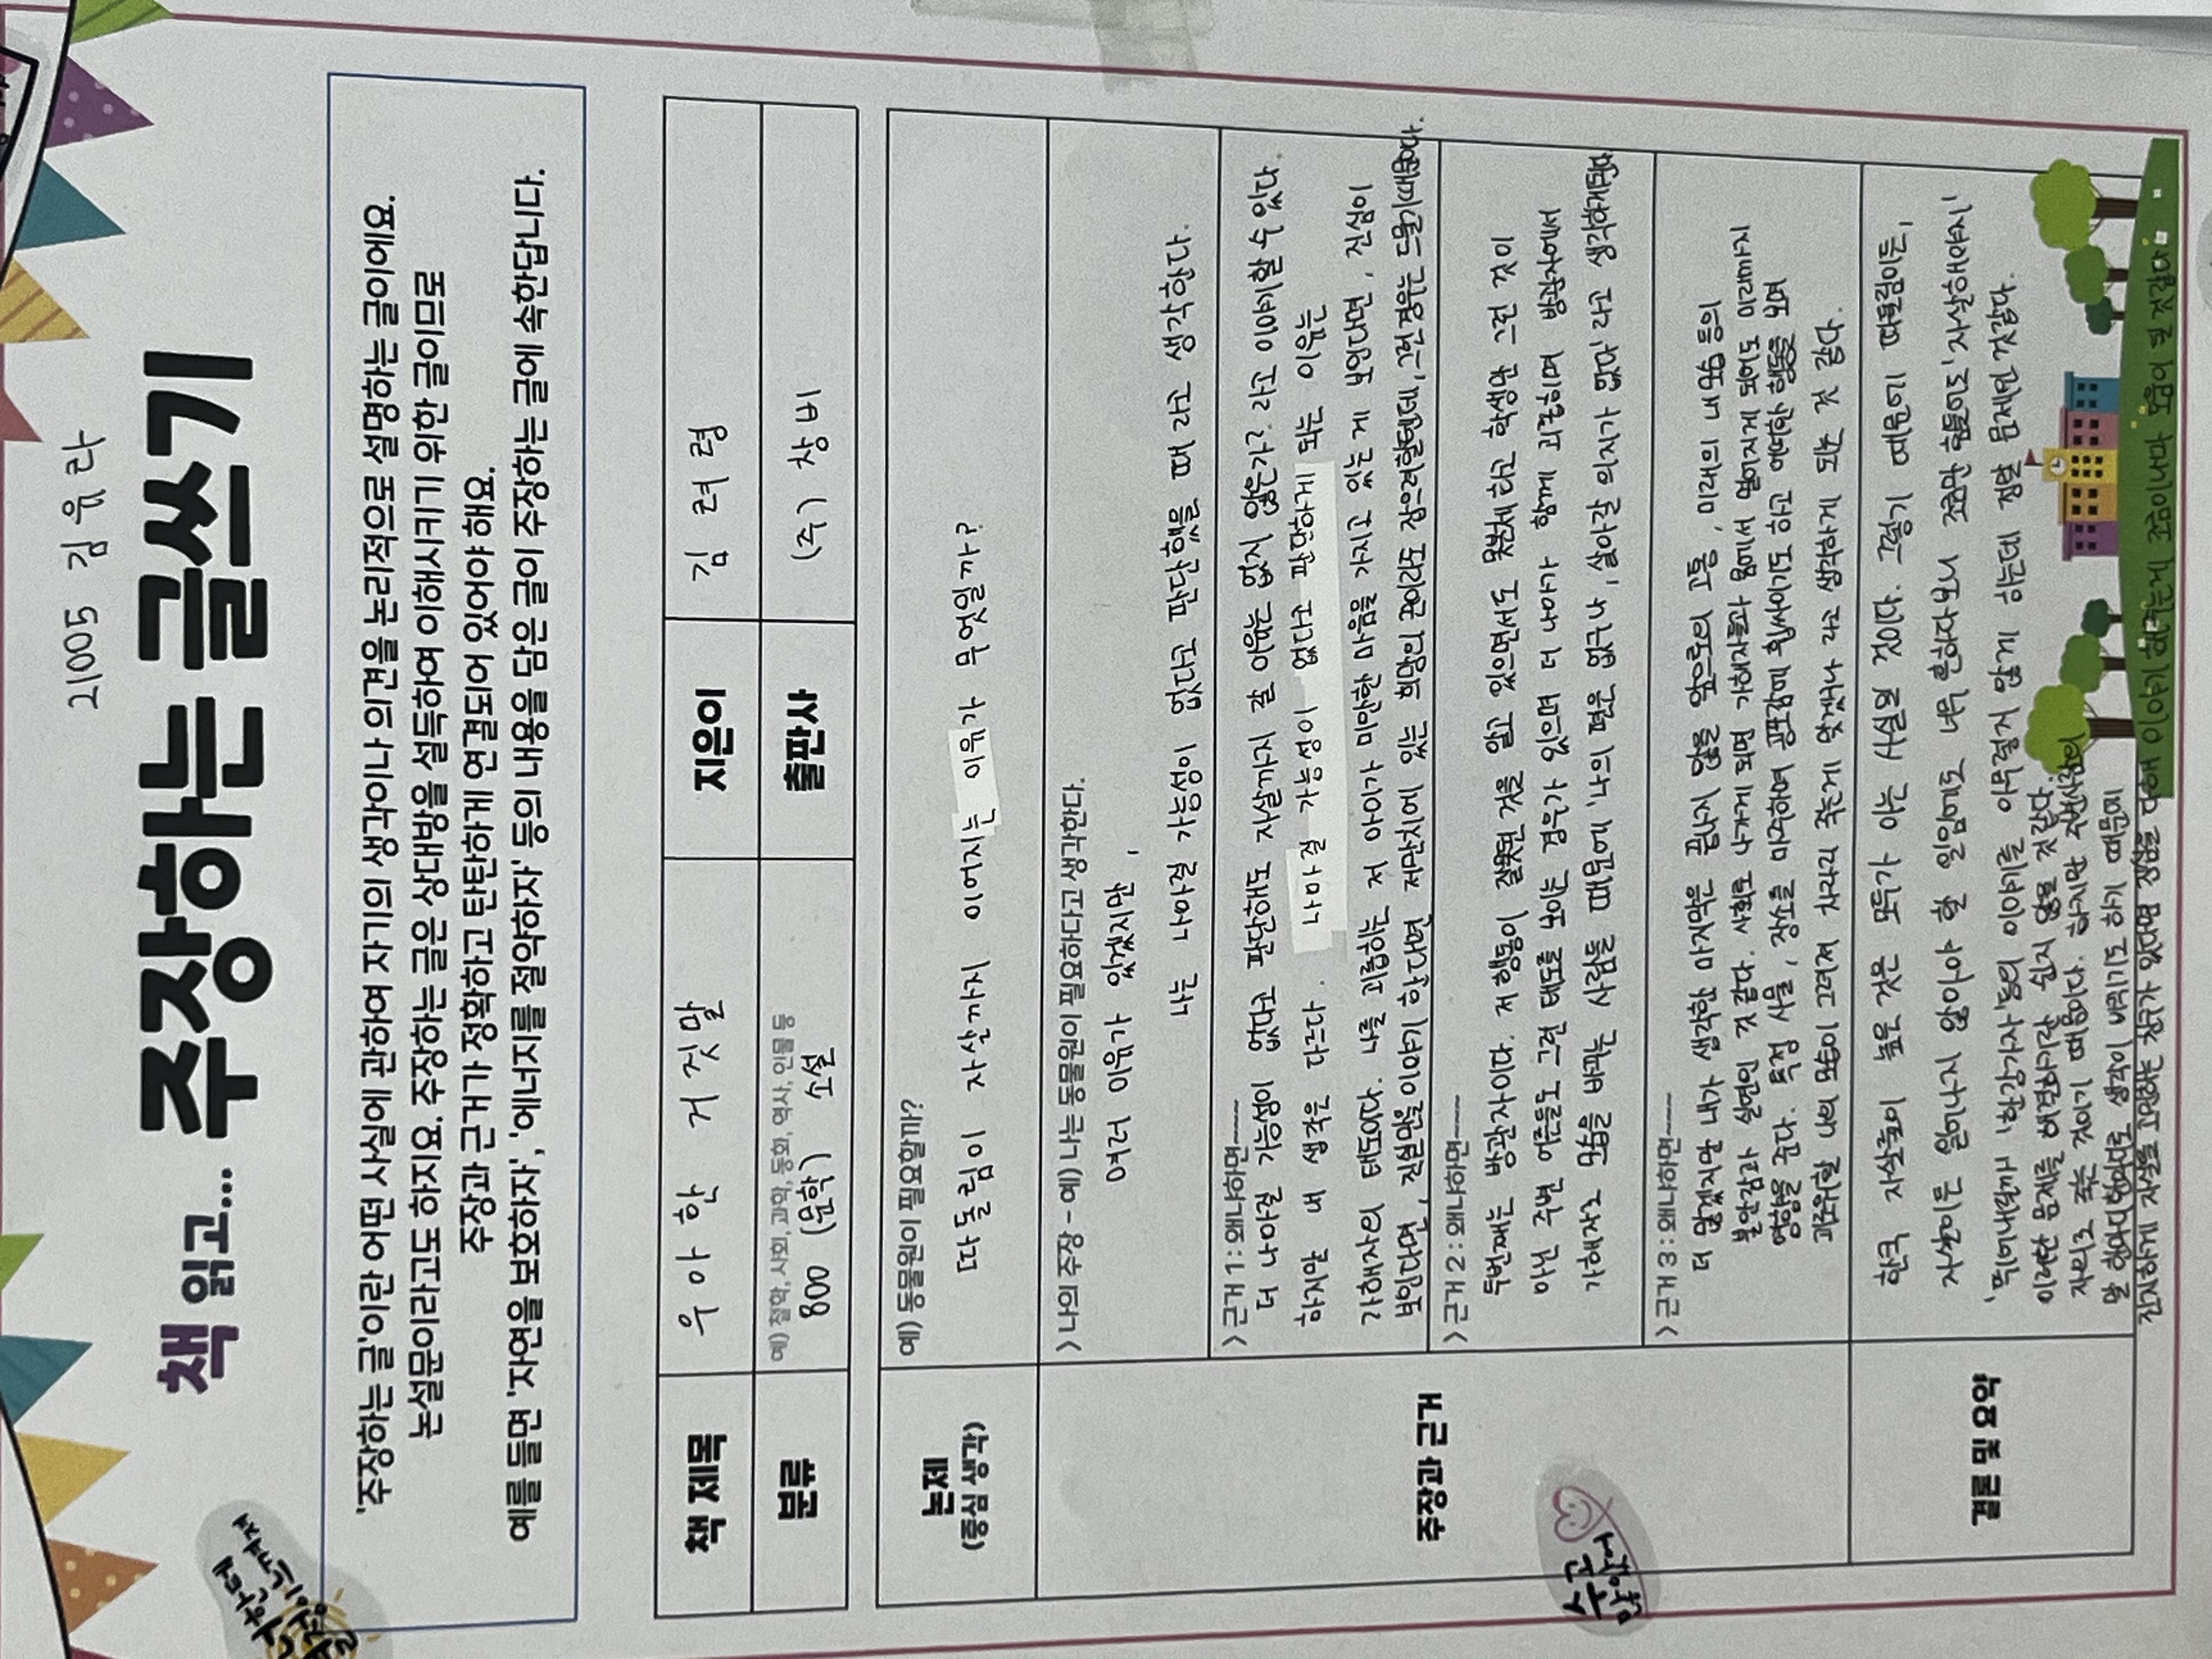 21005 김유라
책 읽고... 주장하는 글쓰기
'주장하는 글'이란 어떤 사실에 관하여 자기의 생각이나 의견을 논리적으로 설명하는 글이에요.
논설문이라고도 하지요. 주장하는 글은 상대방을 설득하여 이해시키기 위한 글이므로
주장과 근거가 정확하고 탄탄하게 연결되어 있어야 해요.
예를 들면 '자연을 보호하자', '에너지를 절약하자' 등의 내용을 담은 글이 주장하는 글에 속한답니다.
책 제목 우아한 거짓말 지은이 김려령
분류 예) 철학, 사회, 과학, 동화, 역사, 인물 등
800 (문학) 소설 출판사 (주) 창비
논제
(중심 생각)
예) 동물원이 필요할까?
따돌림이 자살까지 이어지는 이유가 무엇일까?
주장과 근거
> 나의 주장 - 예) 나는 동물원이 필요하다고 생각한다.
여러 이유가 있겠지만,
나는 나아질 가능성이 없다고 판단했을 때 라고 생각한다.
> 근거 1 : 왜냐하면~~~
더 나아질 가능성이 없다고 판단해도 자살까지 갈 이유는 없지 않은가? 라고 이야기할 수 있다.
하지만 내 생각은 다르다. 나아질 가능성이 없다고 판단하게 되는 이유는
가해자의 태도이다. 나를 괴롭히는 저 아이가 미안한 마음을 가지고 있는 게 보인다면, 진심이
보인다면, 진실만을 이야기 한다면 저만치에 있는
> 근거 2 : 왜냐하면~~~
두번째는 방관자이다. 제 행동이 잘못된 것을 알고 있으면서도 못본체 하고 학생뿐 그런 것이
아닌 주변 어른들도 그런 태도로 보이는 경우가 있으며 더 나아가 함께 괴롭히며 방관자에서
가해자로 몸을 바꾸는 사람들 때문에, 나의 편은 없구나, 살아갈 의지가 없다 라고
> 근거 3 : 왜냐하면~~~
더 많겠지만 내가 생각한 마지막은 끝나지 않을 앞으로의 고통, 미래의 내 모습 등의
불안감과 실연인 것 같다. 사회로 나가게 되면 가해자들과 몸에서 멀어지게 되어도 미래까지
영향을 준다. 특정 사물, 장소를 마주하며 공포감에 휩싸이기도 하고
괴로워할 나의 모습이 그려져 차라리 죽는게 낫겠구나 라고 생각하게 되는 것 같다.
결론 및 요약
한국 자살률이 높은 것은 모두가 아는 사실일 것이다. 그렇기 때문이 따돌림이든,
자살이든 일어나지 않아야 할 일임에도 너무 흔하다보니 조금만 힘들어도 '자살해야지'
이러한 문제를 해결하기란 쉽지 않을 것 같다.
수고
많았어